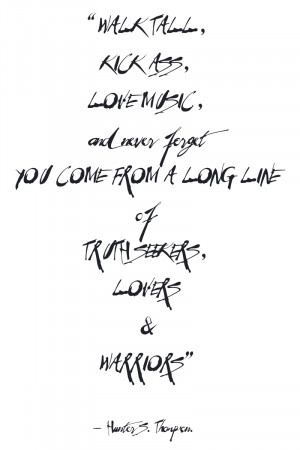 “WALK TALL,
KICK ASS,
LOVE MUSIC,
and never forget
YOU COME FROM A LONG LINE
of
TRUTH SEEKERS,
LOVERS
&
WARRIORS”
– Hunter S. Thompson